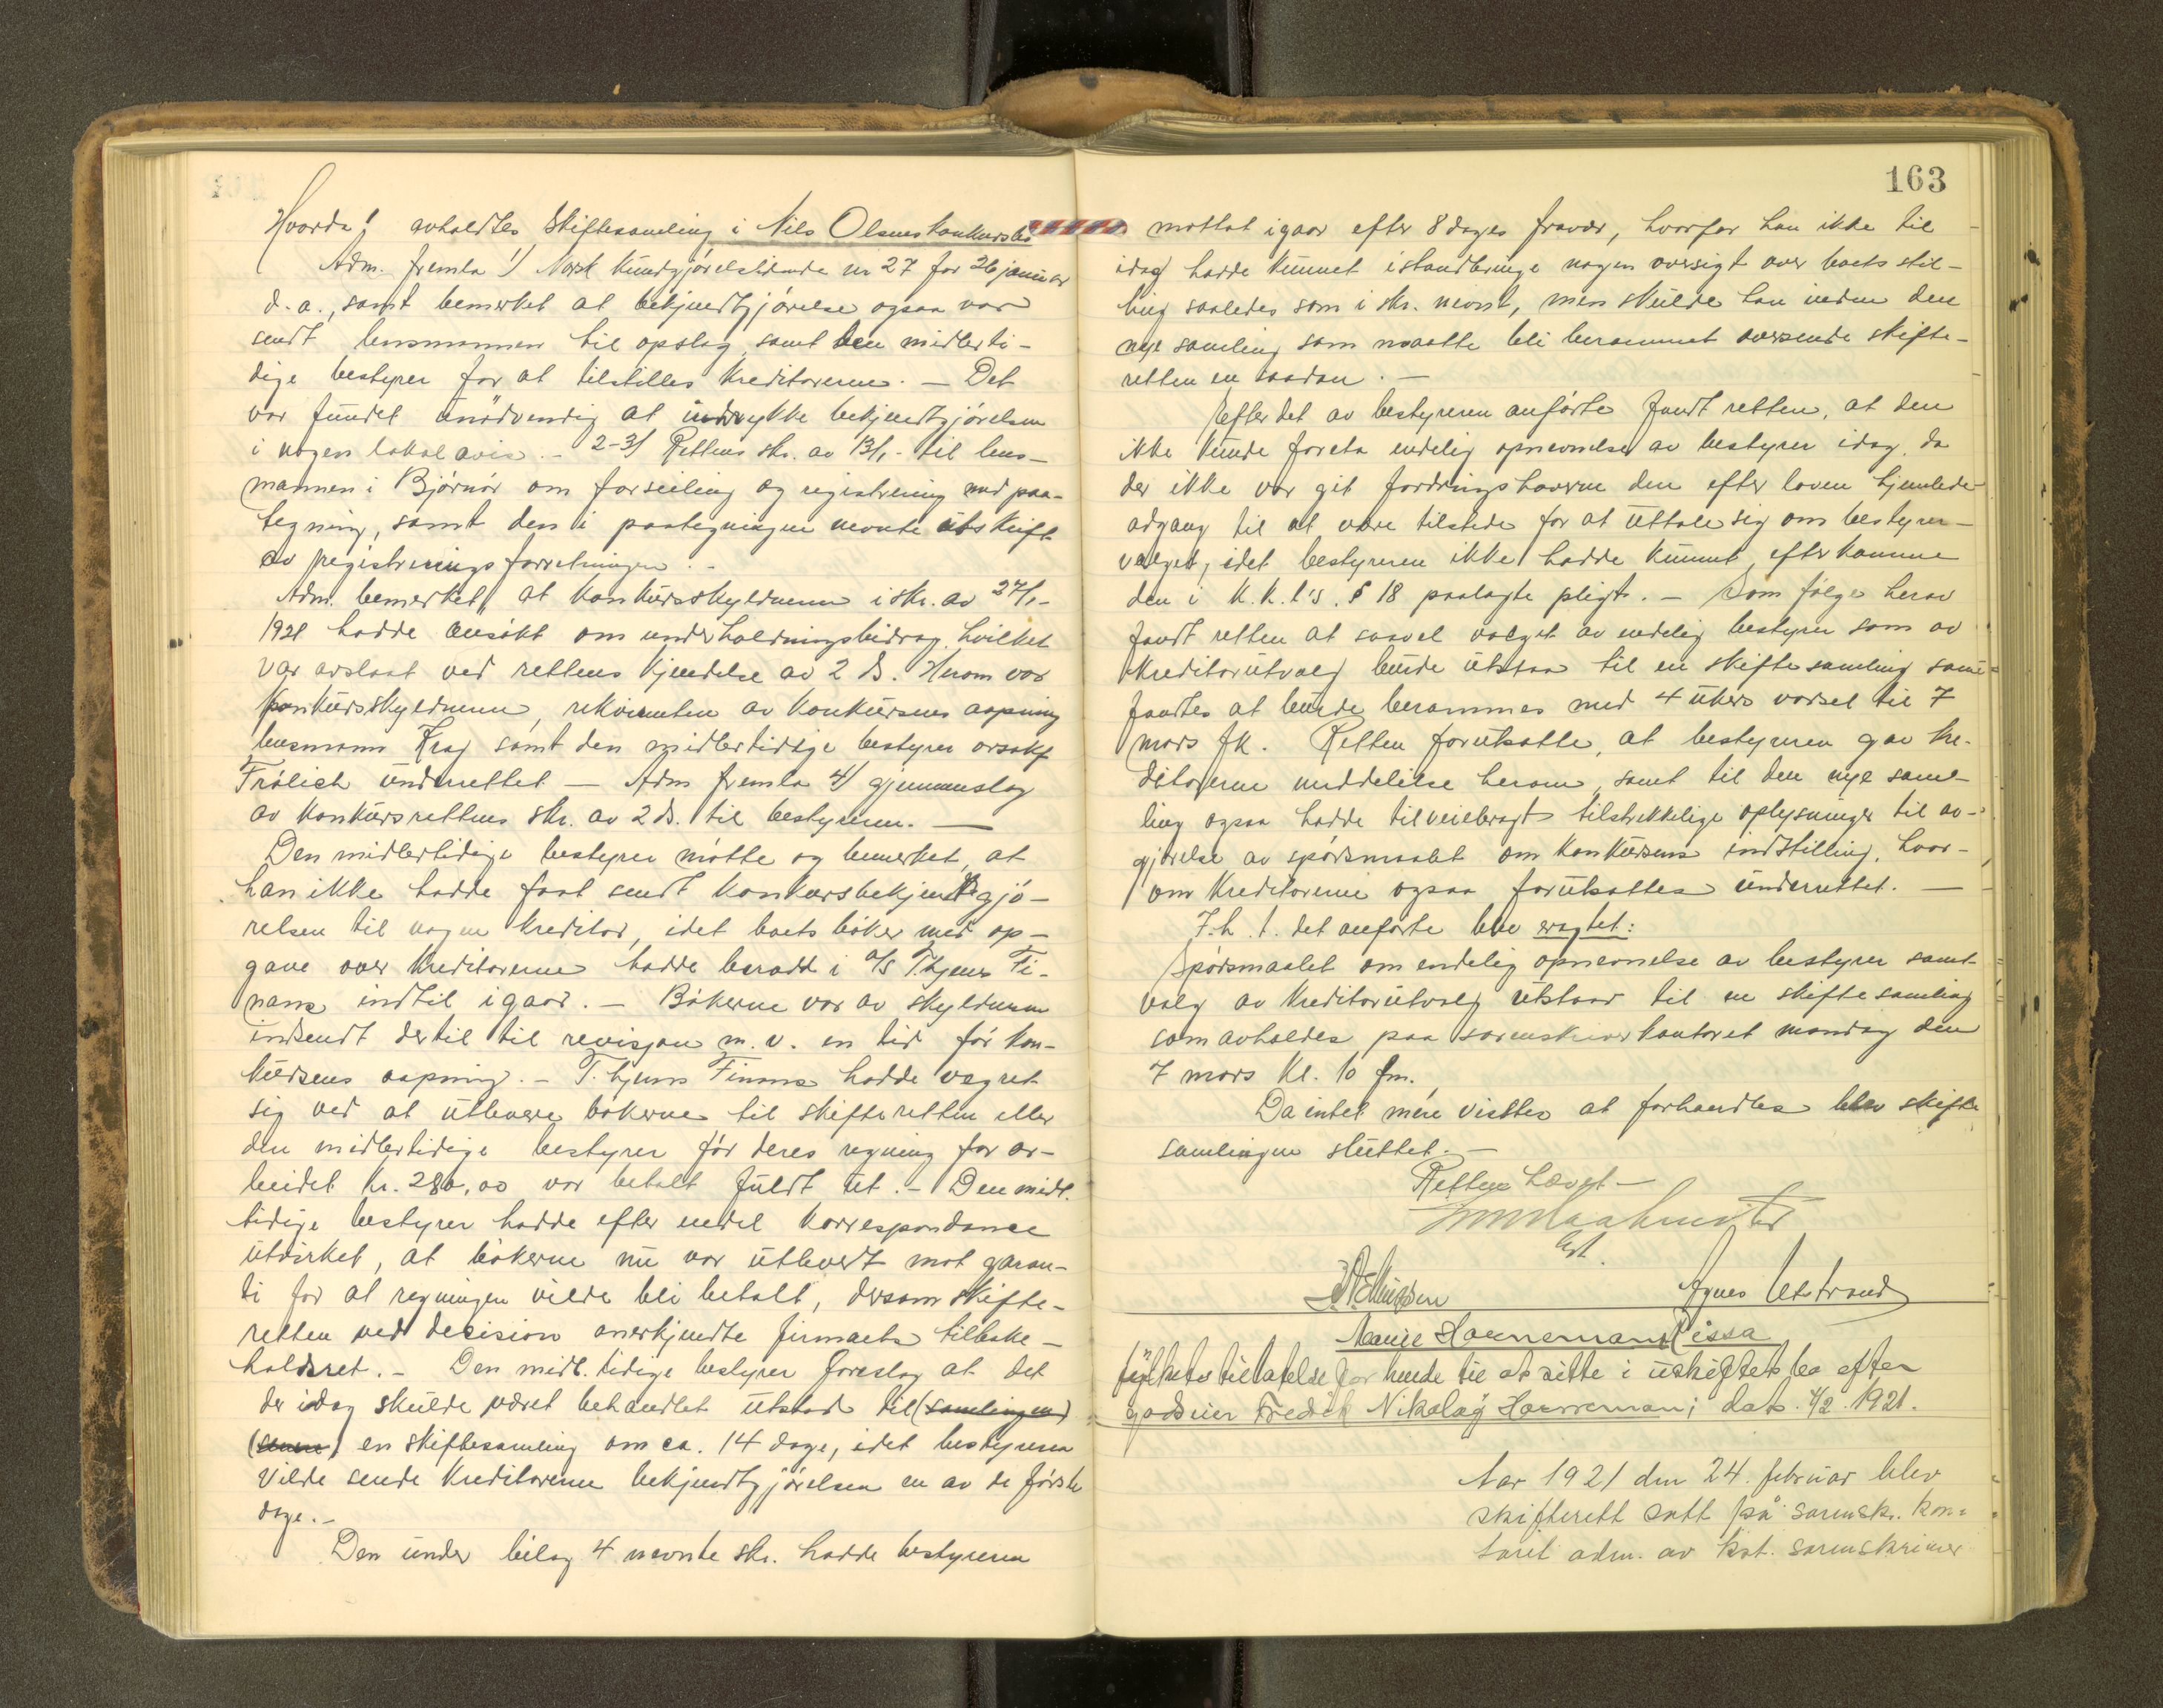 Hvorda! avholdtes Skiftesamling i Nils Olsens konkursbo
Adm. fremla 1/ Norsk Kundgjørelsestidende nr 27 for 26 januar
d.a., samt bemerket at bekjendtgjørelse ogsaa var
sendt lensmannen til opslag, samt den midlerti-
dige bestyrer for at tilstilles Kreditorerne. — Det
var fundet unødvendig at indrykke bekjendtgjørelsen
i nogen lokal avis. - 2-3/ Rettens skr. av 13/1- til lens-
mannen i Bjørnør om forseiling og registrering med paa-
tegning, samt den i paategningen nevnte utskrift
av registreringsforretningen. -
Adm. bemerket, at Konkursskyldneren i skr. av 27/1-
1921 hadde ansøkt om underholdningsbidrag, hvilket
var avslaat ved rettens kjendelse av 2 ds. Herom var
Konkursskyldneren, rekvirenten av Konkursens aapning
lensmann Krag samt den midlertidige bestyrer orsakf
Frølich underrettet — Adm fremla 4/ gjennemslag
av Konkursrettens skr. av 2 ds. til bestyreren. —
Den midlertidige bestyrer møtte og bemerket, at
han ikke hadde faat sendt Konkursbekjendtgjø-
relsen til nogen Kreditor, idet boets bøker med op-
gave over Kreditorerne hadde berodd i A/S T.hjems Fi-
nans indtil igaar. — Bøkerne var av skyldneren
indsendt dertil til revisjon m.v. en tid før kon-
kursens aapning. - T.hjems Finans hadde vegret
sig ved at utlevere bøkerne til skifteretten eller
den midlertidige bestyrer før deres regning for ar-
beidet kr. 280,00 var betalt fuldt ut. - Den midl.
tidige bestyrer hadde efter endel Korrespondance
utvirket, at bøkerne nu var utlevert mot garan-
ti for at regningen vilde bli betalt, dersom skifte-
retten ved decision anerkjendte firmaets tilbake-
holdsret. - Den midl. tidige bestyrer foreslog at det
der idag skulde været behandlet utstod til (samlingen)
(senere) en skiftesamling om ca. 14 dage, idet bestyreren
vilde sende Kreditorerne bekjendtgjørelsen en av de første
dage. -
Den under bilag 4 nevnte skr. hadde bestyreren
163
mottat igaar efter 8 dages fravær, hvorfor han ikke til
idag hadde kunnet istandbringe nogen oversigt over boets stil-
ling saaledes som i skr. nevnt, men skulde han inden den
nye samling som maatte bli berammet oversende skifte-
retten en saadan. —
Efter det av bestyreren anførte fandt retten, at den
ikke kunde foreta endelig opnevnelse av bestyrer idag, da
der ikke var git fordringshaverne den efter loven hjemlede
adgang til at være tilstede for at uttale sig om bestyrer-
valget, idet bestyreren ikke hadde kunnet efterkomme
den i K.K.l's. § 18 paalagte pligt. — Som følge herav
fandt retten at saavel valget av endelig bestyrer som av
Kreditorutvalg burde utstaa til en skiftesamling som
fandtes at burde berammes med 4 ukers varsel til 7
mars fk. Retten forutsatte, at bestyreren gav kre-
ditorerne meddelelse herom, samt til den nye sam-
ling ogsaa hadde tilveiebragt tilstrekkelige oplysninger til av-
gjørelse av spørsmaalet om Konkursens indstilling, hvor-
om Kreditorerne ogsaa forutsattes underrettet. —
I.h.t. det anførte blev eragtet:
Spørsmaalet om endelig opnevnelse av bestyrer samt
valg av Kreditorutvalg utstaar til en skiftesamling
som avholdes paa sorenskriverkontoret mandag den
7 mars Kl. 10 fm.
Da intet mere vistes at forhandles blev skifte
samlingen sluttet. —
Retten hævet —
Agnes Utstrand
Marie Hornemann Rissa
fylkets tillatelse for hende til at sitte i uskiftet bo efter
godseier Fredrik Nikolay Hornemann; dat. 4/2. 1921.
Aar 1921 den 24. februar blev
skifterett satt på sorensk. kon=
toret adm. av kst. sorenskriver